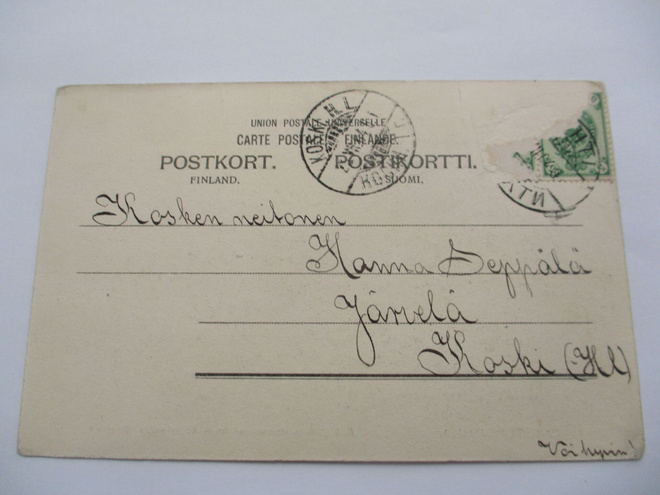 UNION POSTALE UNIVERSELLE
CARTE POSTALE FINLANDE.
POSTKORT. POSTIKORTTI.
FINLAND. SUOMI.
Kosken neitonen
Hanna Seppälä
Järvelä
Koski (Hl)
Voi hyvin!